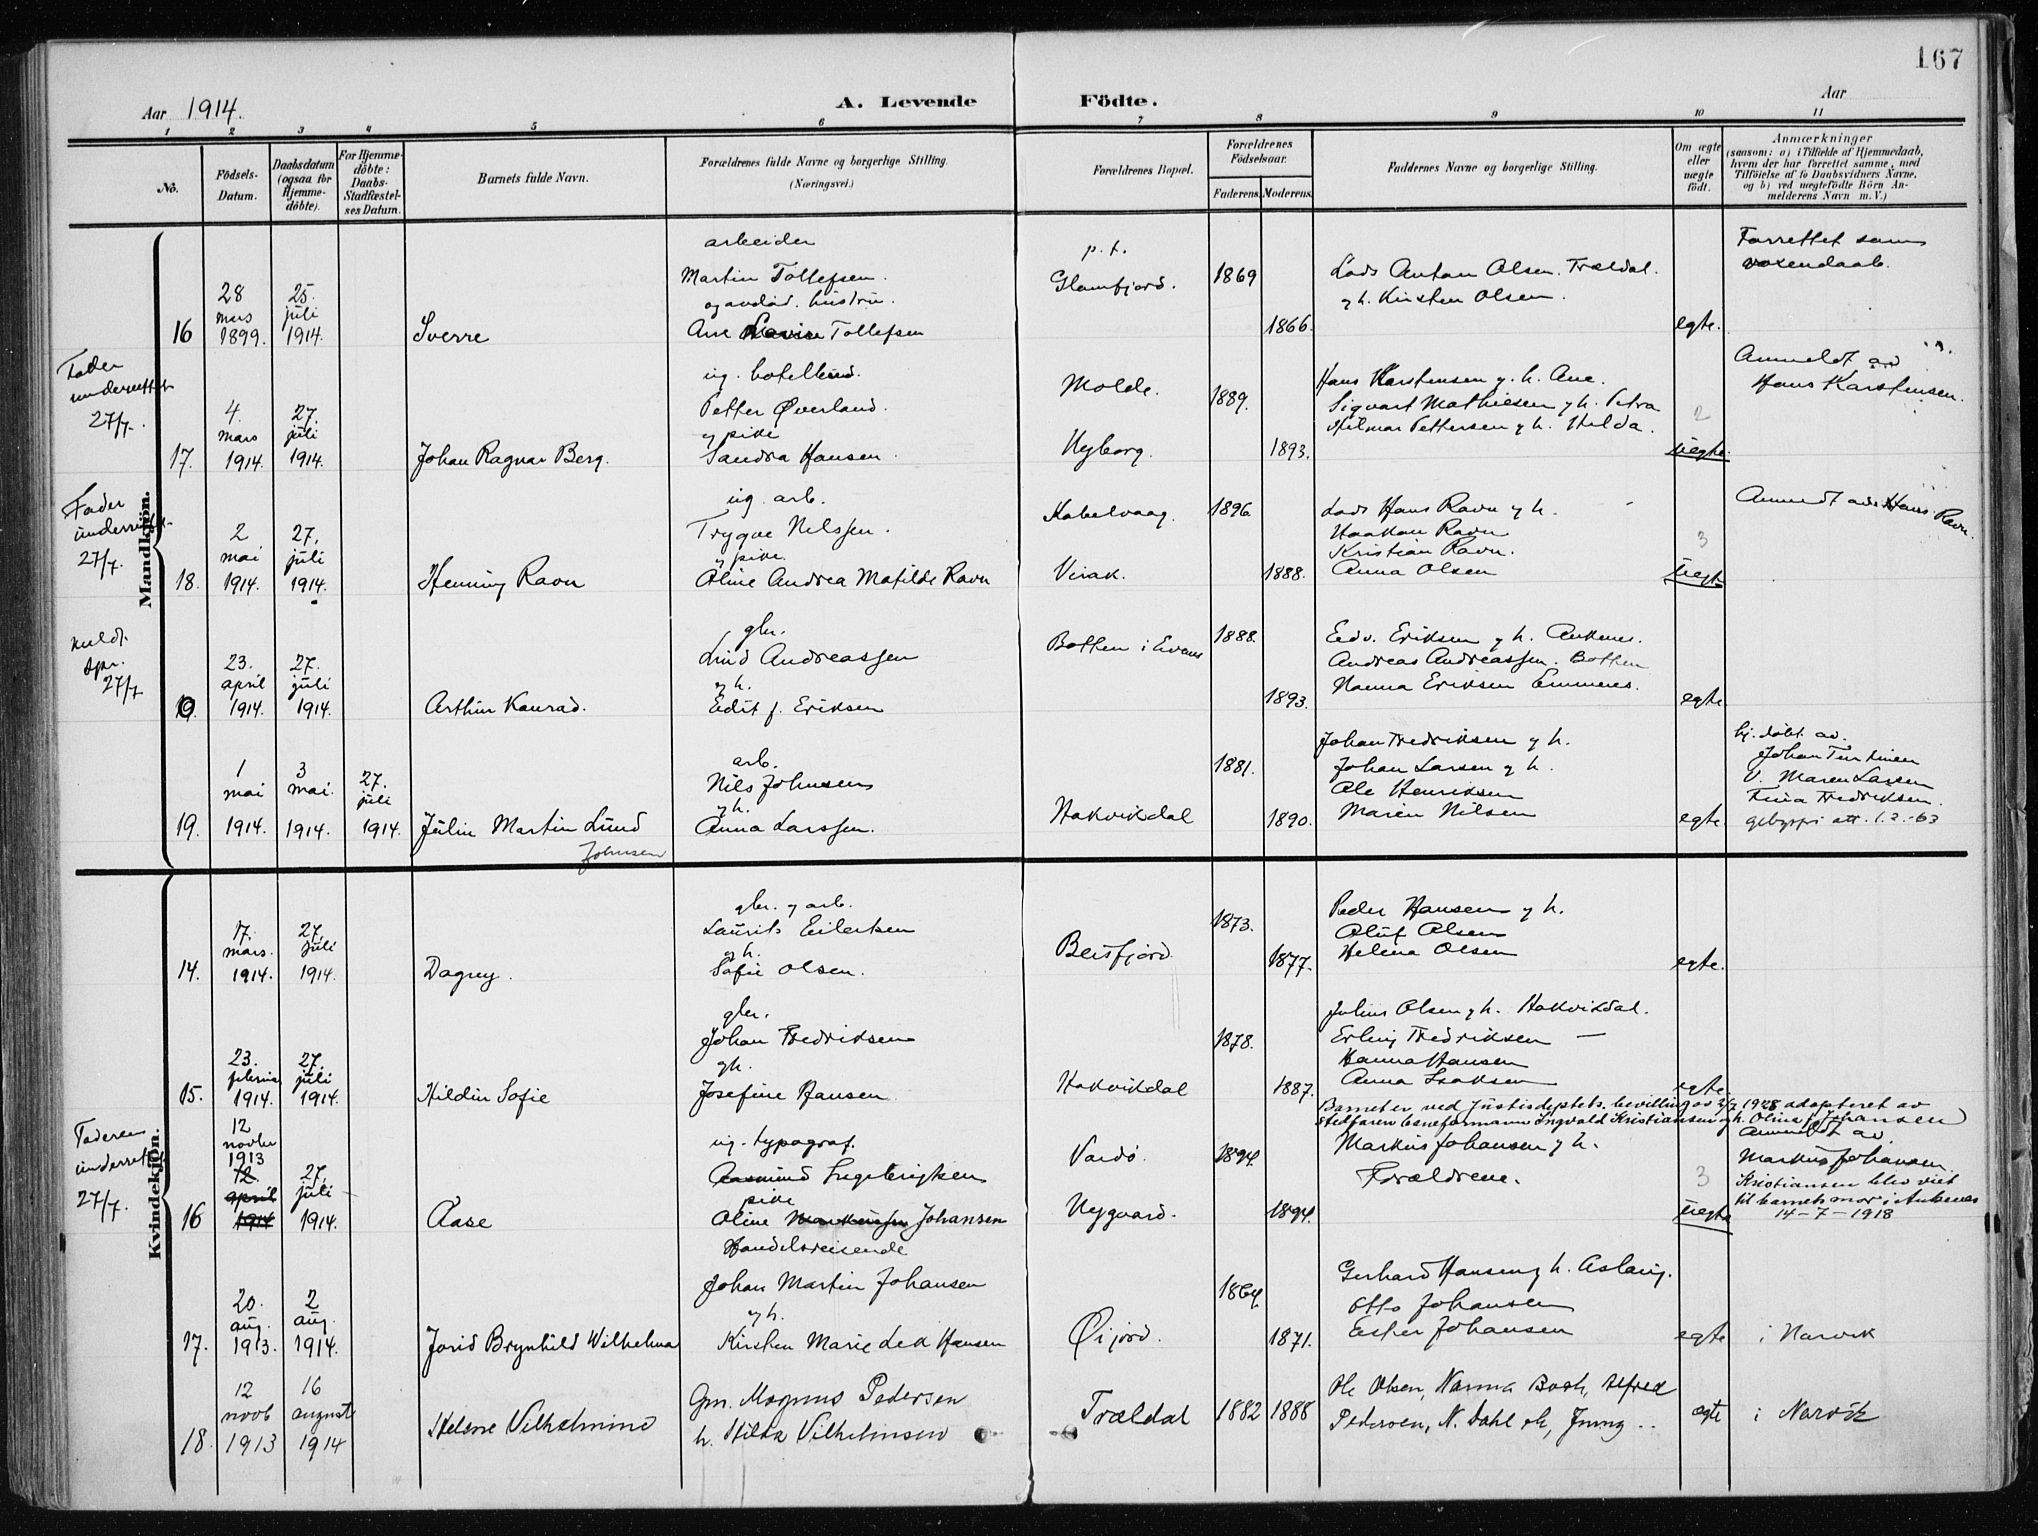 167
Aar 1914.
A. Levende Födte.
Aar
1 2 3 4 5 6 7 8 9 10 11
No.
Födsels-Datum.
Daabsdatum (ogsaa for Hjemme-döbte).
For Hjemme-döbte: Daabs-Stadfæstel-ses Datum.
Barnets fulde Navn.
Forældrenes fulde Navne og borgerlige Stilling.
(Næringsvei.)
Forældrenes Bopæl.
Forældrenes Födselsaar.
Faderens. Moderens.
Faddernes Navne og borgerlige Stilling.
Om ægte eller uægte födt.
Anmærkninger
(saasom: a) i Tilfælde af Hjemmedaab,
hvem der har forrettet samme, med
Tilföielse af to Daabsvidners Navne,
og b) ved uægtefödte Börn An-
melderens Navn m. V.)
Mandkjön.
16
28 mars 1899.
25. juli 1914.
Sverre
arbeider
Martin Tollefsen.
og avdød. hustru.
Ane Tollefsen
p. t.
Glomfjord.
1869
1866.
Lods Anton Olsen. Trældal.
og h. Kirsten Olsen.
egte.
Forrettet som
voxendaab.
Fader
underrettet
27/7.
17.
4. mars 1914.
27. juli 1914.
Johan Ragnar Berg.
ug.
Petter Øverland.
og pike
Sandra Hansen.
Molde.
Nyborg.
1889.
1893.
Hans Karstensen g. h. Ane.
Sigvart Mathiesen g h. Petra
Hilmar Pettersen g h. Hilda.
2
uegte.
Anmeldt av
Hans Karstensen.
Fader
underrettet
27/7.
18.
2 mai 1914.
27. juli 1914.
Henning Ravn
ug. arb.
Trygve Nilssen.
g pike
Oline Andrea Matilde Ravn
Kabelvaag.
Virak.
1896
1888.
Lods Hans Ravn g h.
Haakon Ravn
Kristian Ravn.
Anna Olsen
3
uegte
Anmeldt av Hans Ravn.
27/7
19.
23. april 1914.
27. juli 1914.
Arthur Konrad.
gbr.
Andreassen
g h.
Edit f. Eriksen
Botten i
1888.
1893.
Edv. Eriksen g h. Ankenes.
Andreas Andreassen. Botten
Hanna Eriksen Emmenes.
egte
19.
1 mai 1914.
3 mai 1914.
27. juli 1914.
Julin Martin Lund
Johnsen
arb.
Nils Johnsen
g h.
Anna Larssen.
Hakvikdal
1881.
1890.
Johan Fredriksen g h.
Johan Larsen g h.
Ole Henriksen
Maren Nilsen
egte.
hj. døbt av.
Johan
v. Maren Larsen
Fina Fredriksen.
att. 1.2.-63
Kvindekjön.
14.
17. mars. 1914.
27. juli 1914.
Dagny.
gbr. g arb.
Laurits Eilertsen
g h.
Sofie Olsen.
Beisfjord
1873.
1877.
Peder Hansen g h.
Oluf Olsen
Helena Olsen
egte.
15.
23. februar 1914.
27. juli 1914.
Hildur Sofie
gbr.
Johan Fredriksen
gh.
Josefine Hansen
Hakvikdal
1878.
1887.
Julius Olsen g h. Hakvikdal.
Erling Fredriksen —
Hanna Hansen
Anna Isaksen
egte
Barnet er ved Justisdeptets. bevilling av 2/7 1928 adopteret av
stedfaren banformann Ingvald Kristiansen g h. Oline f. Johansen
Faderen
underrettet
27/7.
16
12 novbr 1913
12. april 1914
27. juli 1914.
Aase
ug. typograf.
Aasmund Ingebrigtsen
pike
Oline Johansen
Vardø.
Nygaard.
1894.
1894.
Markus Johansen g h.
Forældrene.
3
uegte
Anmeldt av
Markus Johansen
Kristiansen blev viet
til barnets mor i Ankenes
14-7-1918
17.
20. aug. 1913.
2 aug. 1914.
Jorid Brynhild Wilhelma
Handelsreisende
Johan Martin Johansen
g h.
Kirsten Marie Lea Hansen
Øijord.
1864
1871.
Gerhard Hansen g h. Aslaug.
Otto Johansen
Ester Johansen
egte
i Narvik
18.
12 novb 1913
16 august 1914
Helene Vilhelmine
Gm. Magnus Pedersen
h. Hilda Vilhelmsen
Trældal
1882
1888
Ole Olsen, Nanna Bosk, Alfred
Pedersen, N. Dahl
ægte
i Narvik